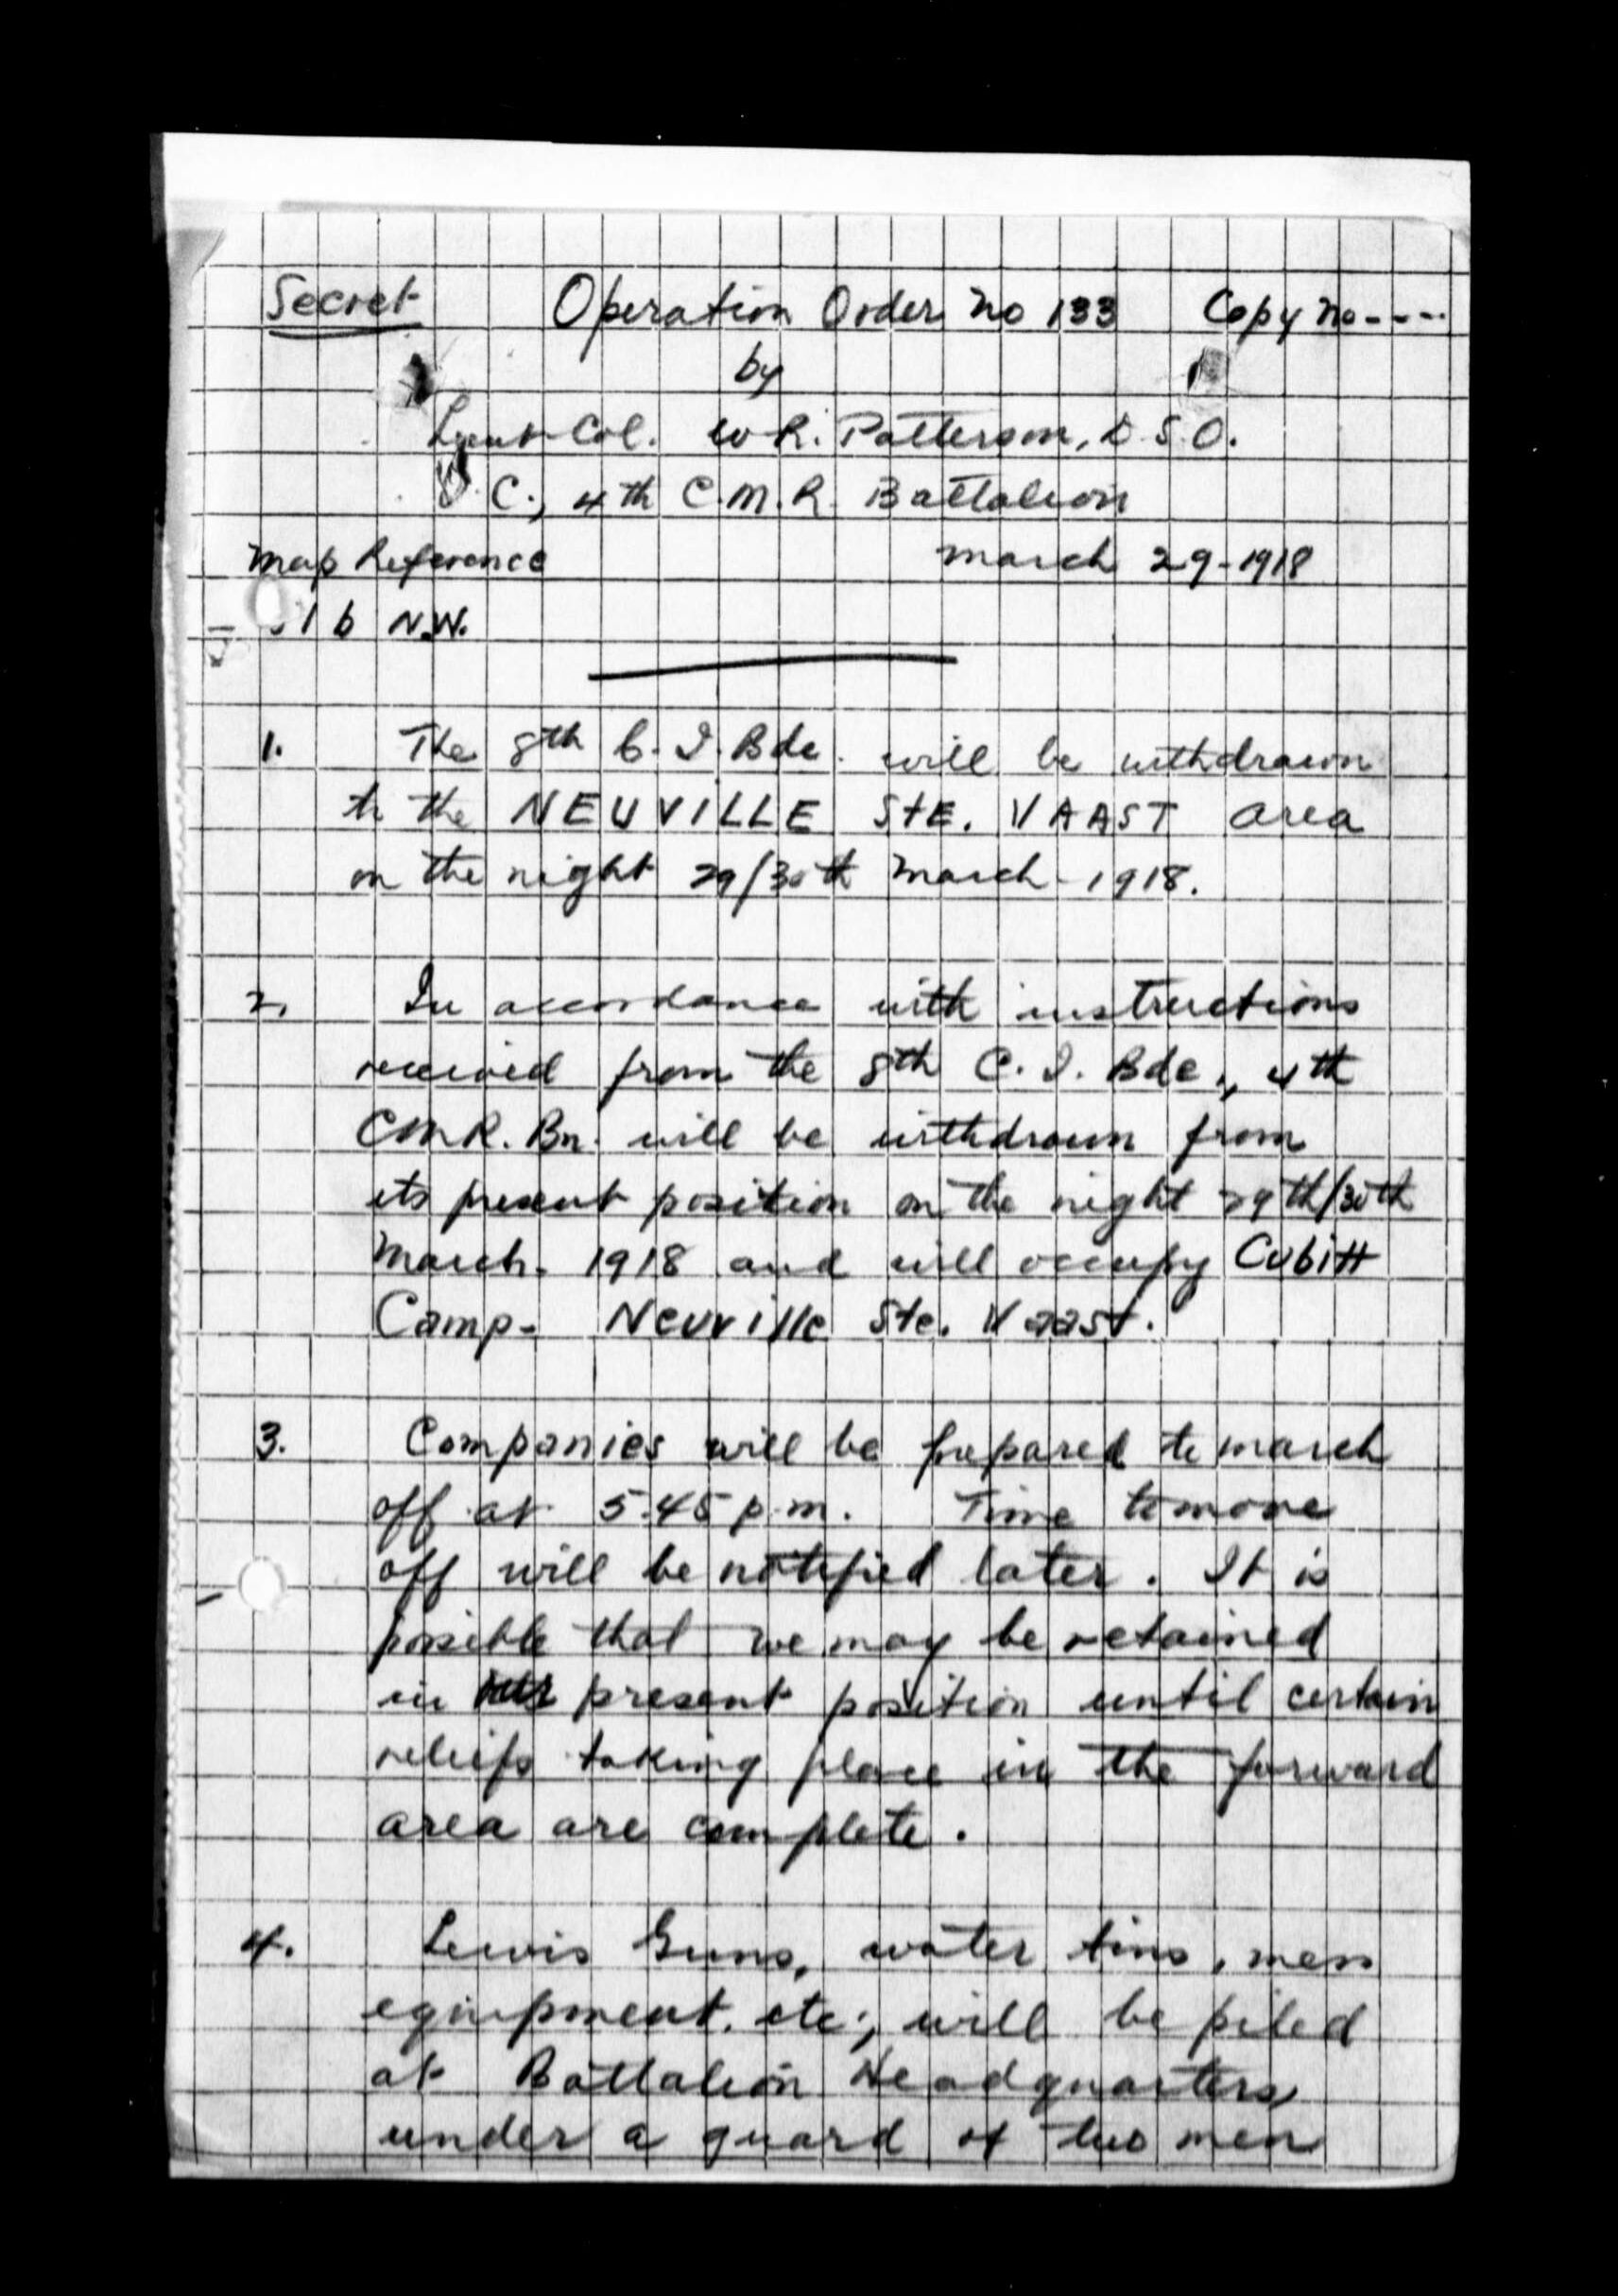 Secret Operation Order No 133 Copy No----
by
Lieut-Col. W.R. Patterson, D.S.O.
O.C., 4th C.M.R. Battalion
Map Reference March 29-1918
51 b N.W.
1. The 8th C.I. Bde. will be withdrawn
to the NEUVILLE StE. VAAST area
on the night 29/30th March-1918.
2. In accordance with instructions
received from the 8th C.I. Bde., 4th
CMR. Bn. will be withdrawn from
its present position on the night 29th/30th
March. 1918 and will occupy Cubitt
Camp- Neuville Ste. Vaast.
3. Companies will be prepared to march
off at 5.45 p.m. Time to move
off will be notified later. It is
possible that we may be retained
in present position until certain
reliefs taking place in the forward
area are complete.
4. Lewis Guns, water tins, mess
equipment, etc., will be piled
at Battalion Headquarters
under a guard of two men